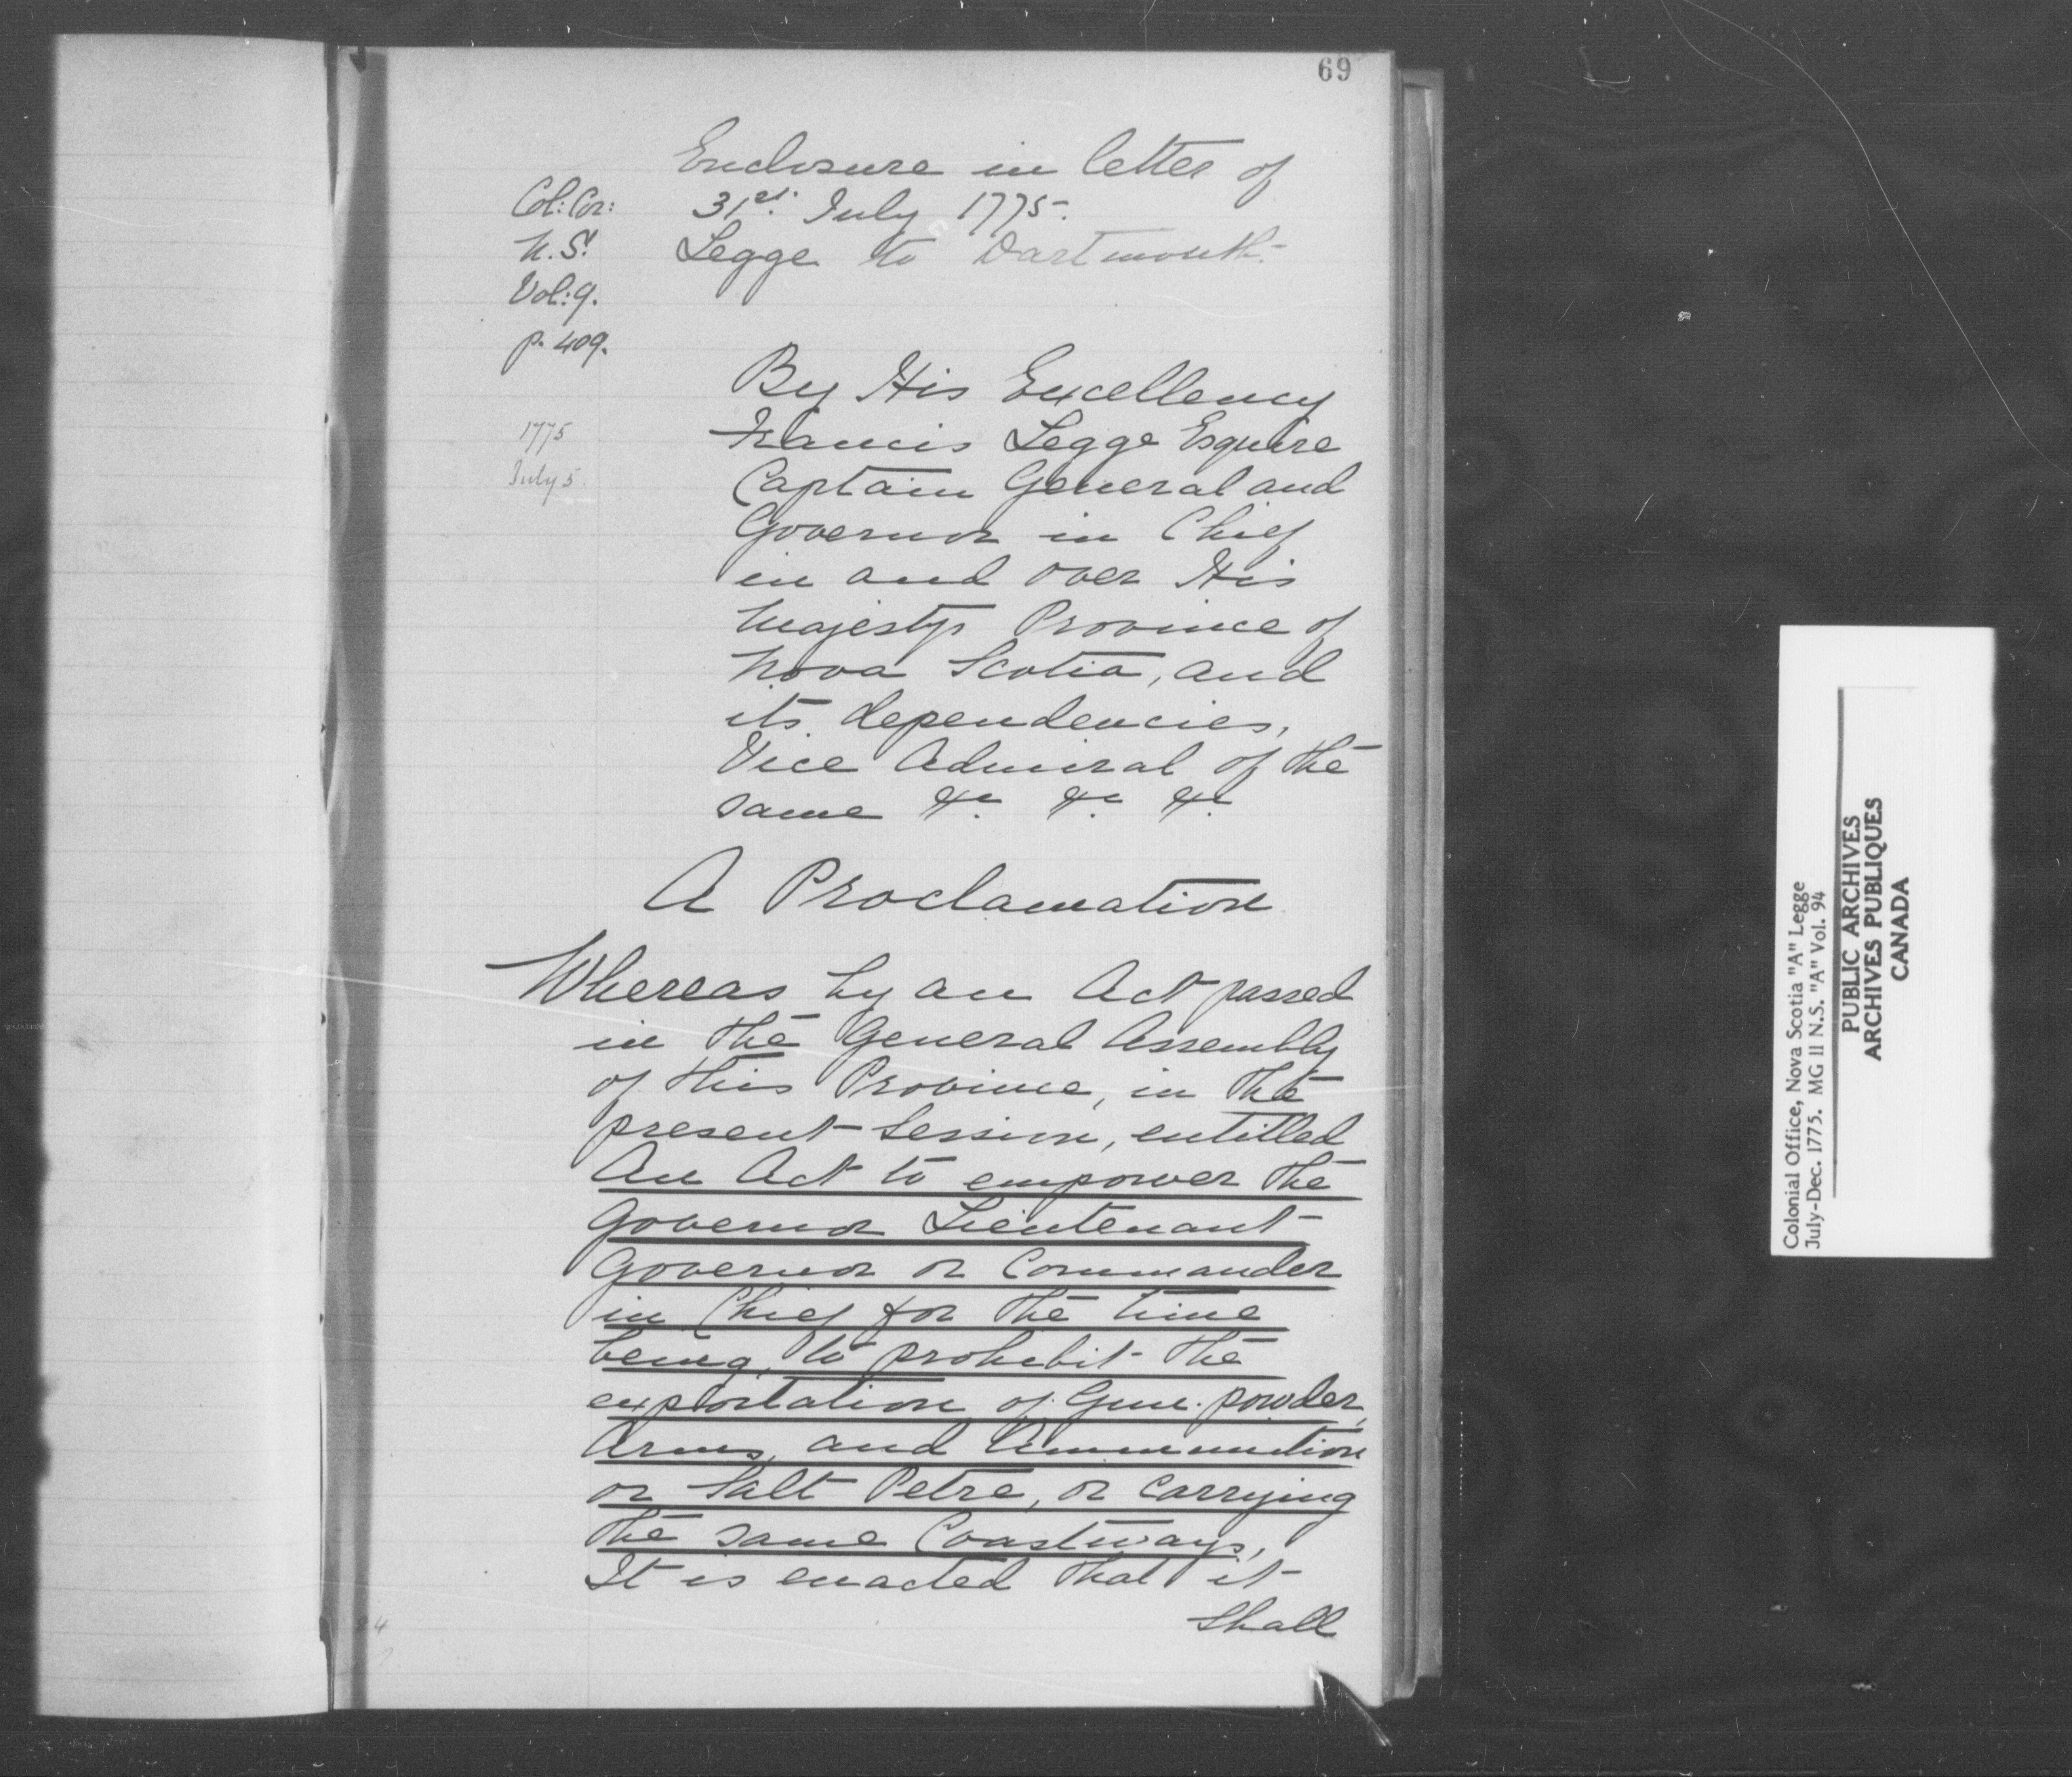 69
Enclosure in letter of
31st. July 1775.
Legge to Dartmouth.
Col: Cor:
N.S.
Vol: 9.
p. 409.
1775
July 5.
By His Excellency
Francis Legge Esquire
Captain General and
Governor in Chief
in and over His
Majestys Province of
Nova Scotia, and
its dependencies,
Vice Admiral of the
same &c. &c. &c.
A Proclamation
Whereas by an Act passed
in the General Assembly
of this Province, in the
present Session, entitled
An Act to empower the
Governor Lieutenant
Governor or Commander
in Chief for the time
being, to prohibit the
exportation of Gun. powder,
Arms, and Ammunition
or Salt Petre, or carrying
the same Coastways,
It is enacted that it
Shall
Colonial Office, Nova Scotia "A" Legge
July-Dec. 1775. MG 11 N.S. "A" Vol. 94
PUBLIC ARCHIVES
ARCHIVES PUBLIQUES
CANADA